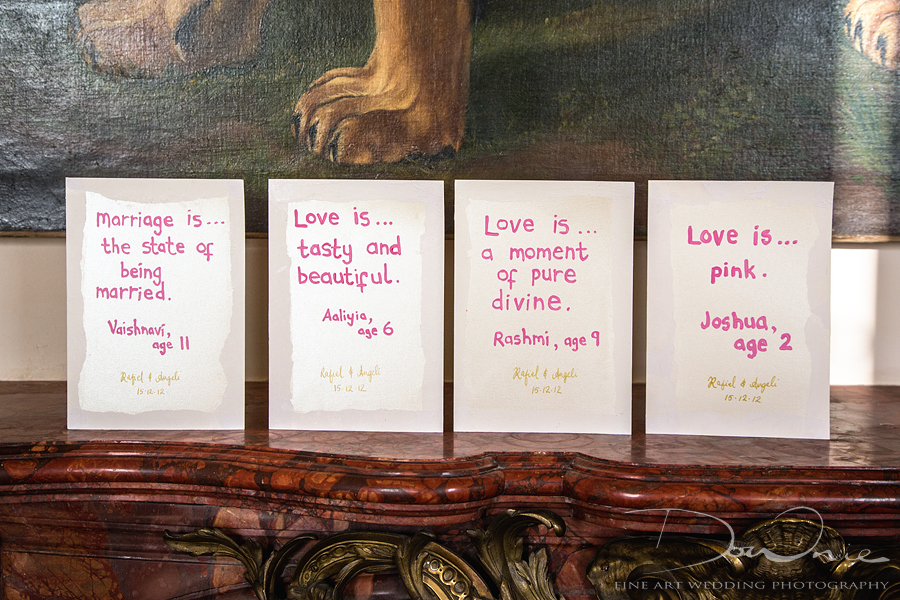 Marriage is...
the state of
being
married.
Vaishnavi,
age 11
Rafiel & Angeli
15·12·12
Love is...
tasty and
beautiful.
Aaliyia,
age 6
Rafiel & Angeli
15·12·12
Love is...
a moment
of pure
divine.
Rashmi, age 9
Rafiel & Angeli
15·12·12
Love is...
pink.
Joshua,
age 2
Rafiel & Angeli
15·12·12
FINE ART WEDDING PHOTOGRAPHY